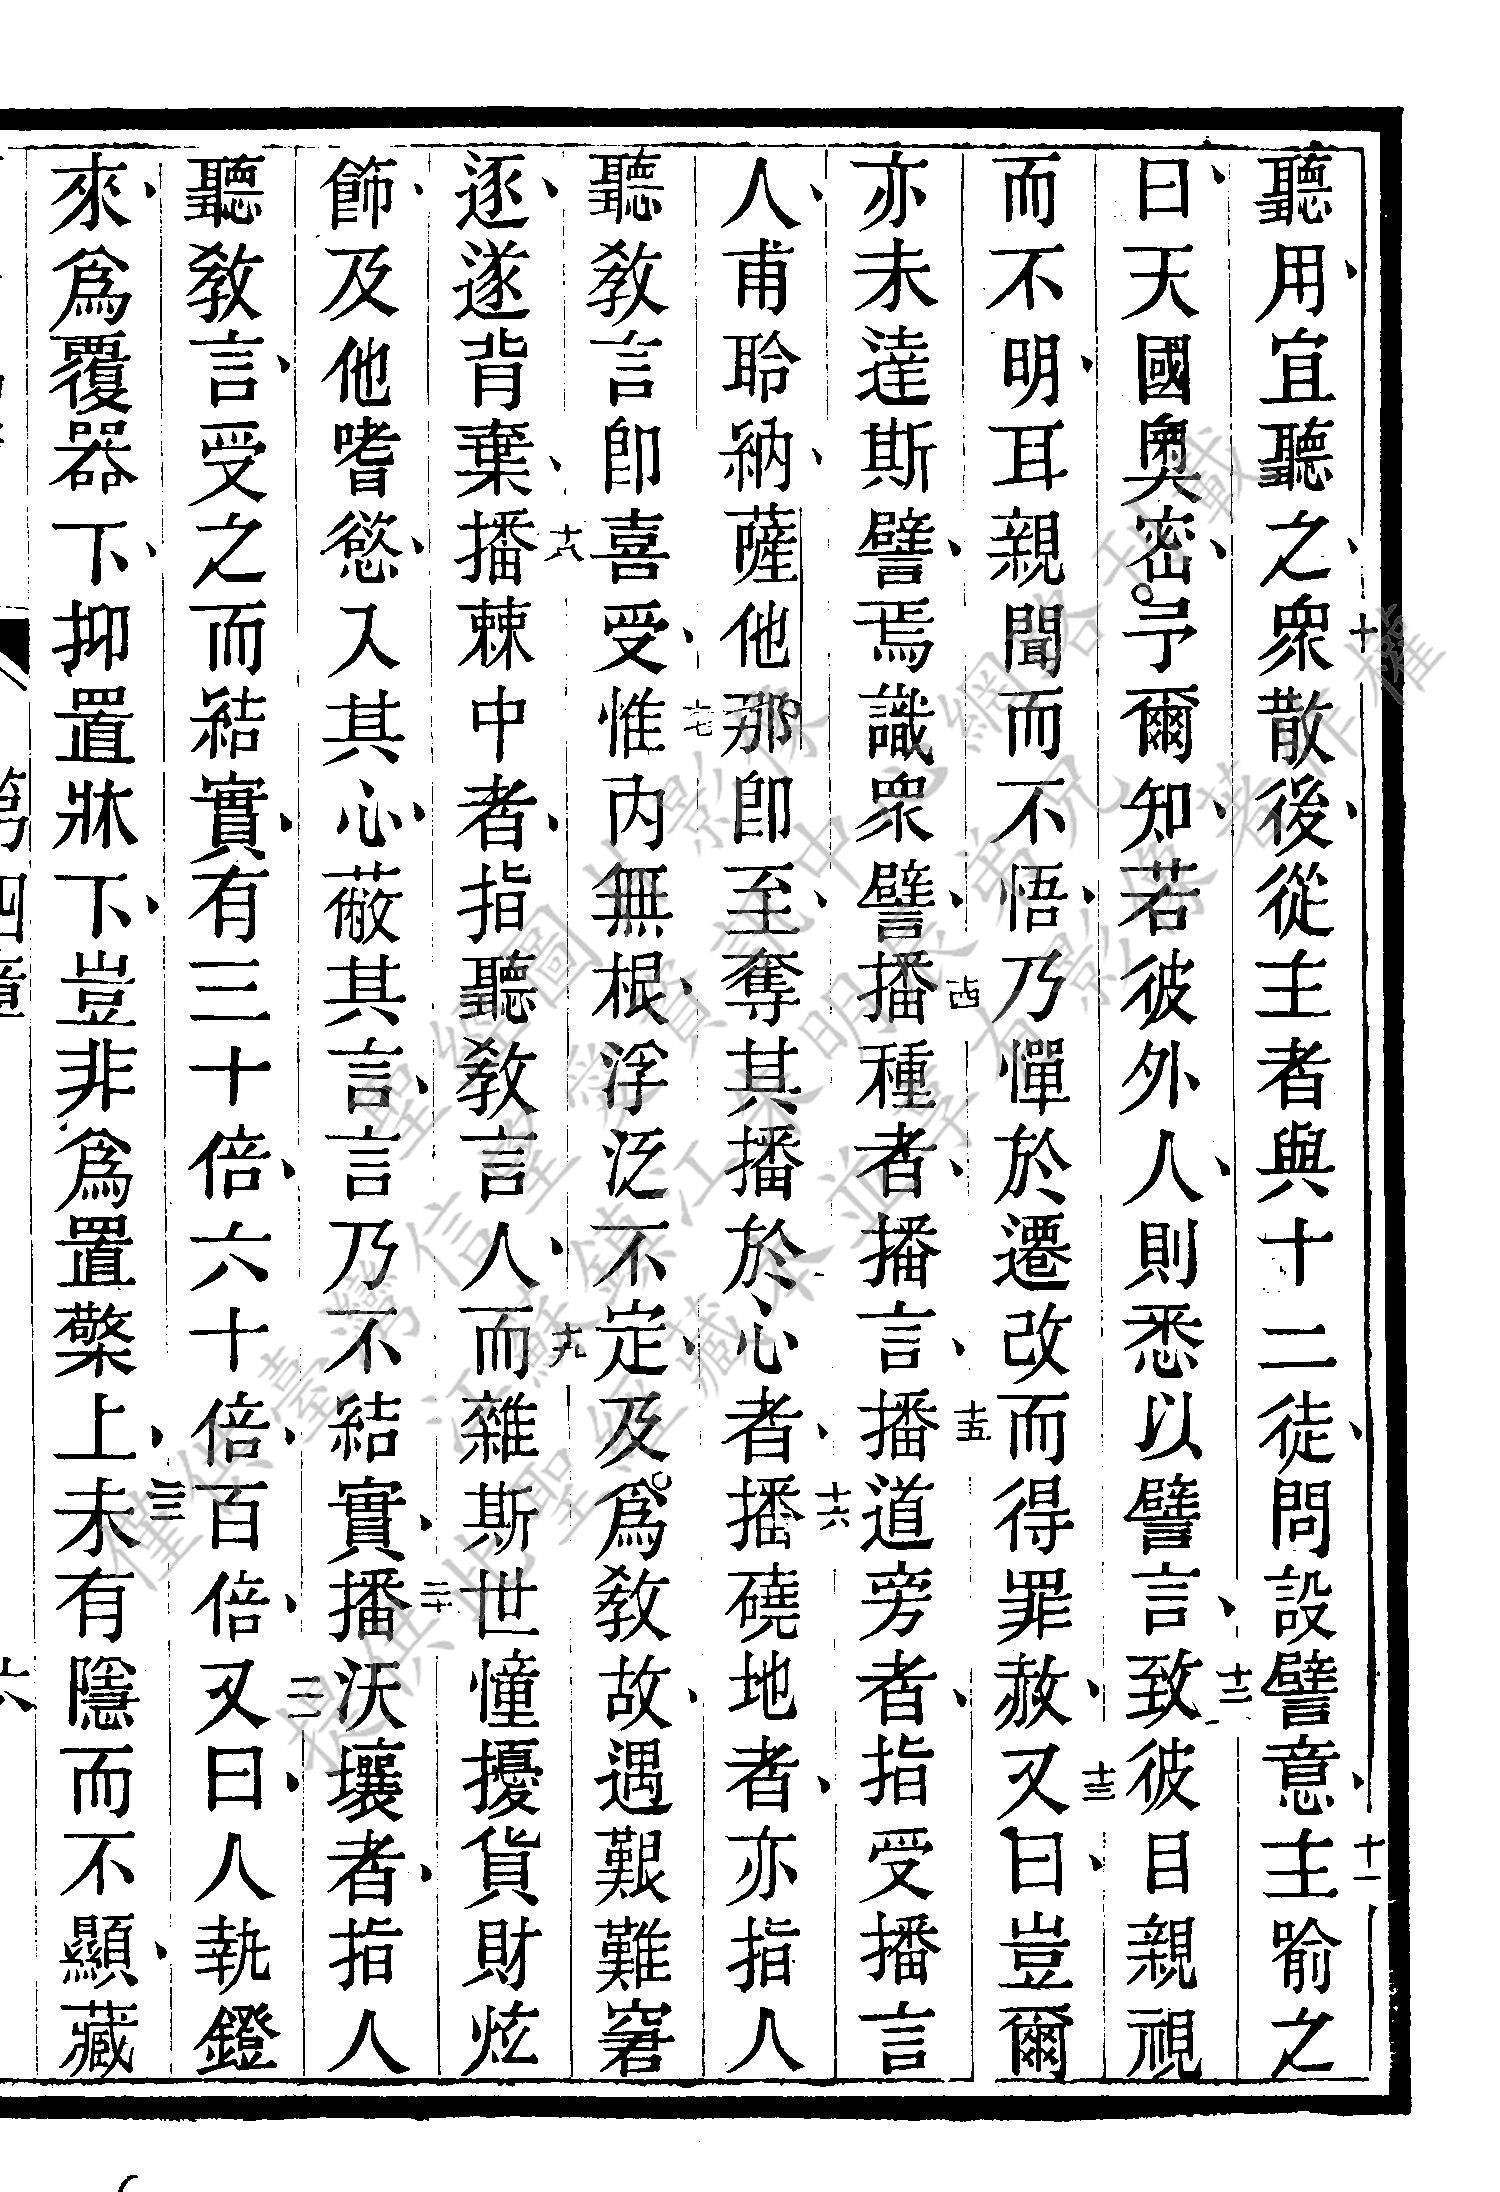 聽用、宜聽之、十衆散後、從主者與十二徒、問設譬意、十一主喻之
曰、天國奥密、予爾知、若彼外人、則悉以譬言、十二致彼目親視
而不明、耳親聞而不悟、乃憚於遷改而得罪赦、十三又曰、豈爾
亦未達斯譬、焉識衆譬、十四播種者、播言、十五播道旁者、指受播言
人、甫聆納、薩他那即至、奪其播於心者、十六播磽地者、亦指人
聽敎言即喜受、十七惟內無根、浮泛不定、及爲敎故、遇艱難窘
逐、遂背棄、十八播棘中者、指聽敎言人、十九而雜斯世憧擾貨財炫
飾、及他嗜慾、入其心、蔽其言、言乃不結實、二十播沃壤者、指人
聽敎言、受之而結實、有三十倍、六十倍、百倍、二一又曰、人執鐙
來、爲覆器下、抑置牀下、豈非爲置檠上、二二未有隱而不顯、藏
第四章
六
僅供臺灣信望愛資訊中心網路刊載